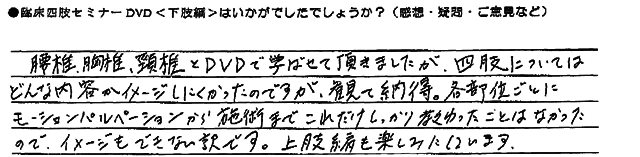 ●臨床四肢セミナーDVD＜下肢編＞はいかがでしたでしょうか？（感想・疑問・ご意見など）
腰椎、胸椎、頸椎とDVDで学ばせて頂きましたが、四肢については
どんな内容かイメージしにくかったのですが、観て納得。各部位ごとに
モーションパルペーションから施術までこれだけしっかり教わったことはなかった
ので、イメージもできない訳です。上肢編も楽しみにしています。